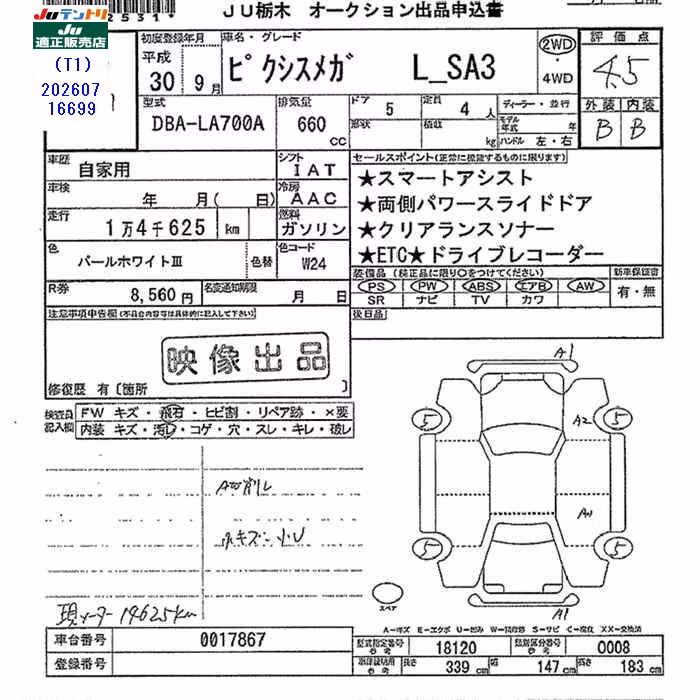 JUテントリ
JU適正販売店
2531*
JU栃木 オークション出品申込書
(T1)
202607
16699
初度登録年月 車名・グレード 評価点
平成 30 9月 ピクシスメガ L_SA3 2WD ・ 4WD 4.5
外装 内装
B B
型式 DBA-LA700A 排気量 660 cc ドア 5 定員 4 人 ディーラー・並行
形状 積載 kg モデル年式 年 ハンドル 左・右
車歴 自家用 シフト IAT
車検 年 月( 日) 冷房 AAC
走行 1万4千625 km 燃料 ガソリン
色 パールホワイトⅢ 色替 色コード W24
R券 8,560円 名変通知期限 月 日
セールスポイント(正常に機能するものに限ります)
★スマートアシスト
★両側パワースライドドア
★クリアランスソナー
★ETC★ドライブレコーダー
装備品(純正品に限り○をつけてください) 新車保証書
PS PW ABS エアB AW 有・無
SR ナビ TV カワ
後日品
注意事項申告欄(不具合内容等は具体的に記入して下さい)
映像出品
修復歴 有 〔箇所 〕
検査員記入欄 FW キズ・飛石・ヒビ割・リペア跡・×要
内装 キズ・汚レ・コゲ・穴・スレ・キレ・破レ
A1
A2
5 5
5 5
A1
スペア
小キズ 小U
現メーター 14625km
A-キズ E-エクボ U-凹み W-補修跡 S-サビ C-腐化 XX-交換済
車台番号 0017867 型式指定番号 参考 18120 類別区分番号 参考 0008
登録番号 参考 長さ 339 cm 幅 147 cm 高さ 183 cm